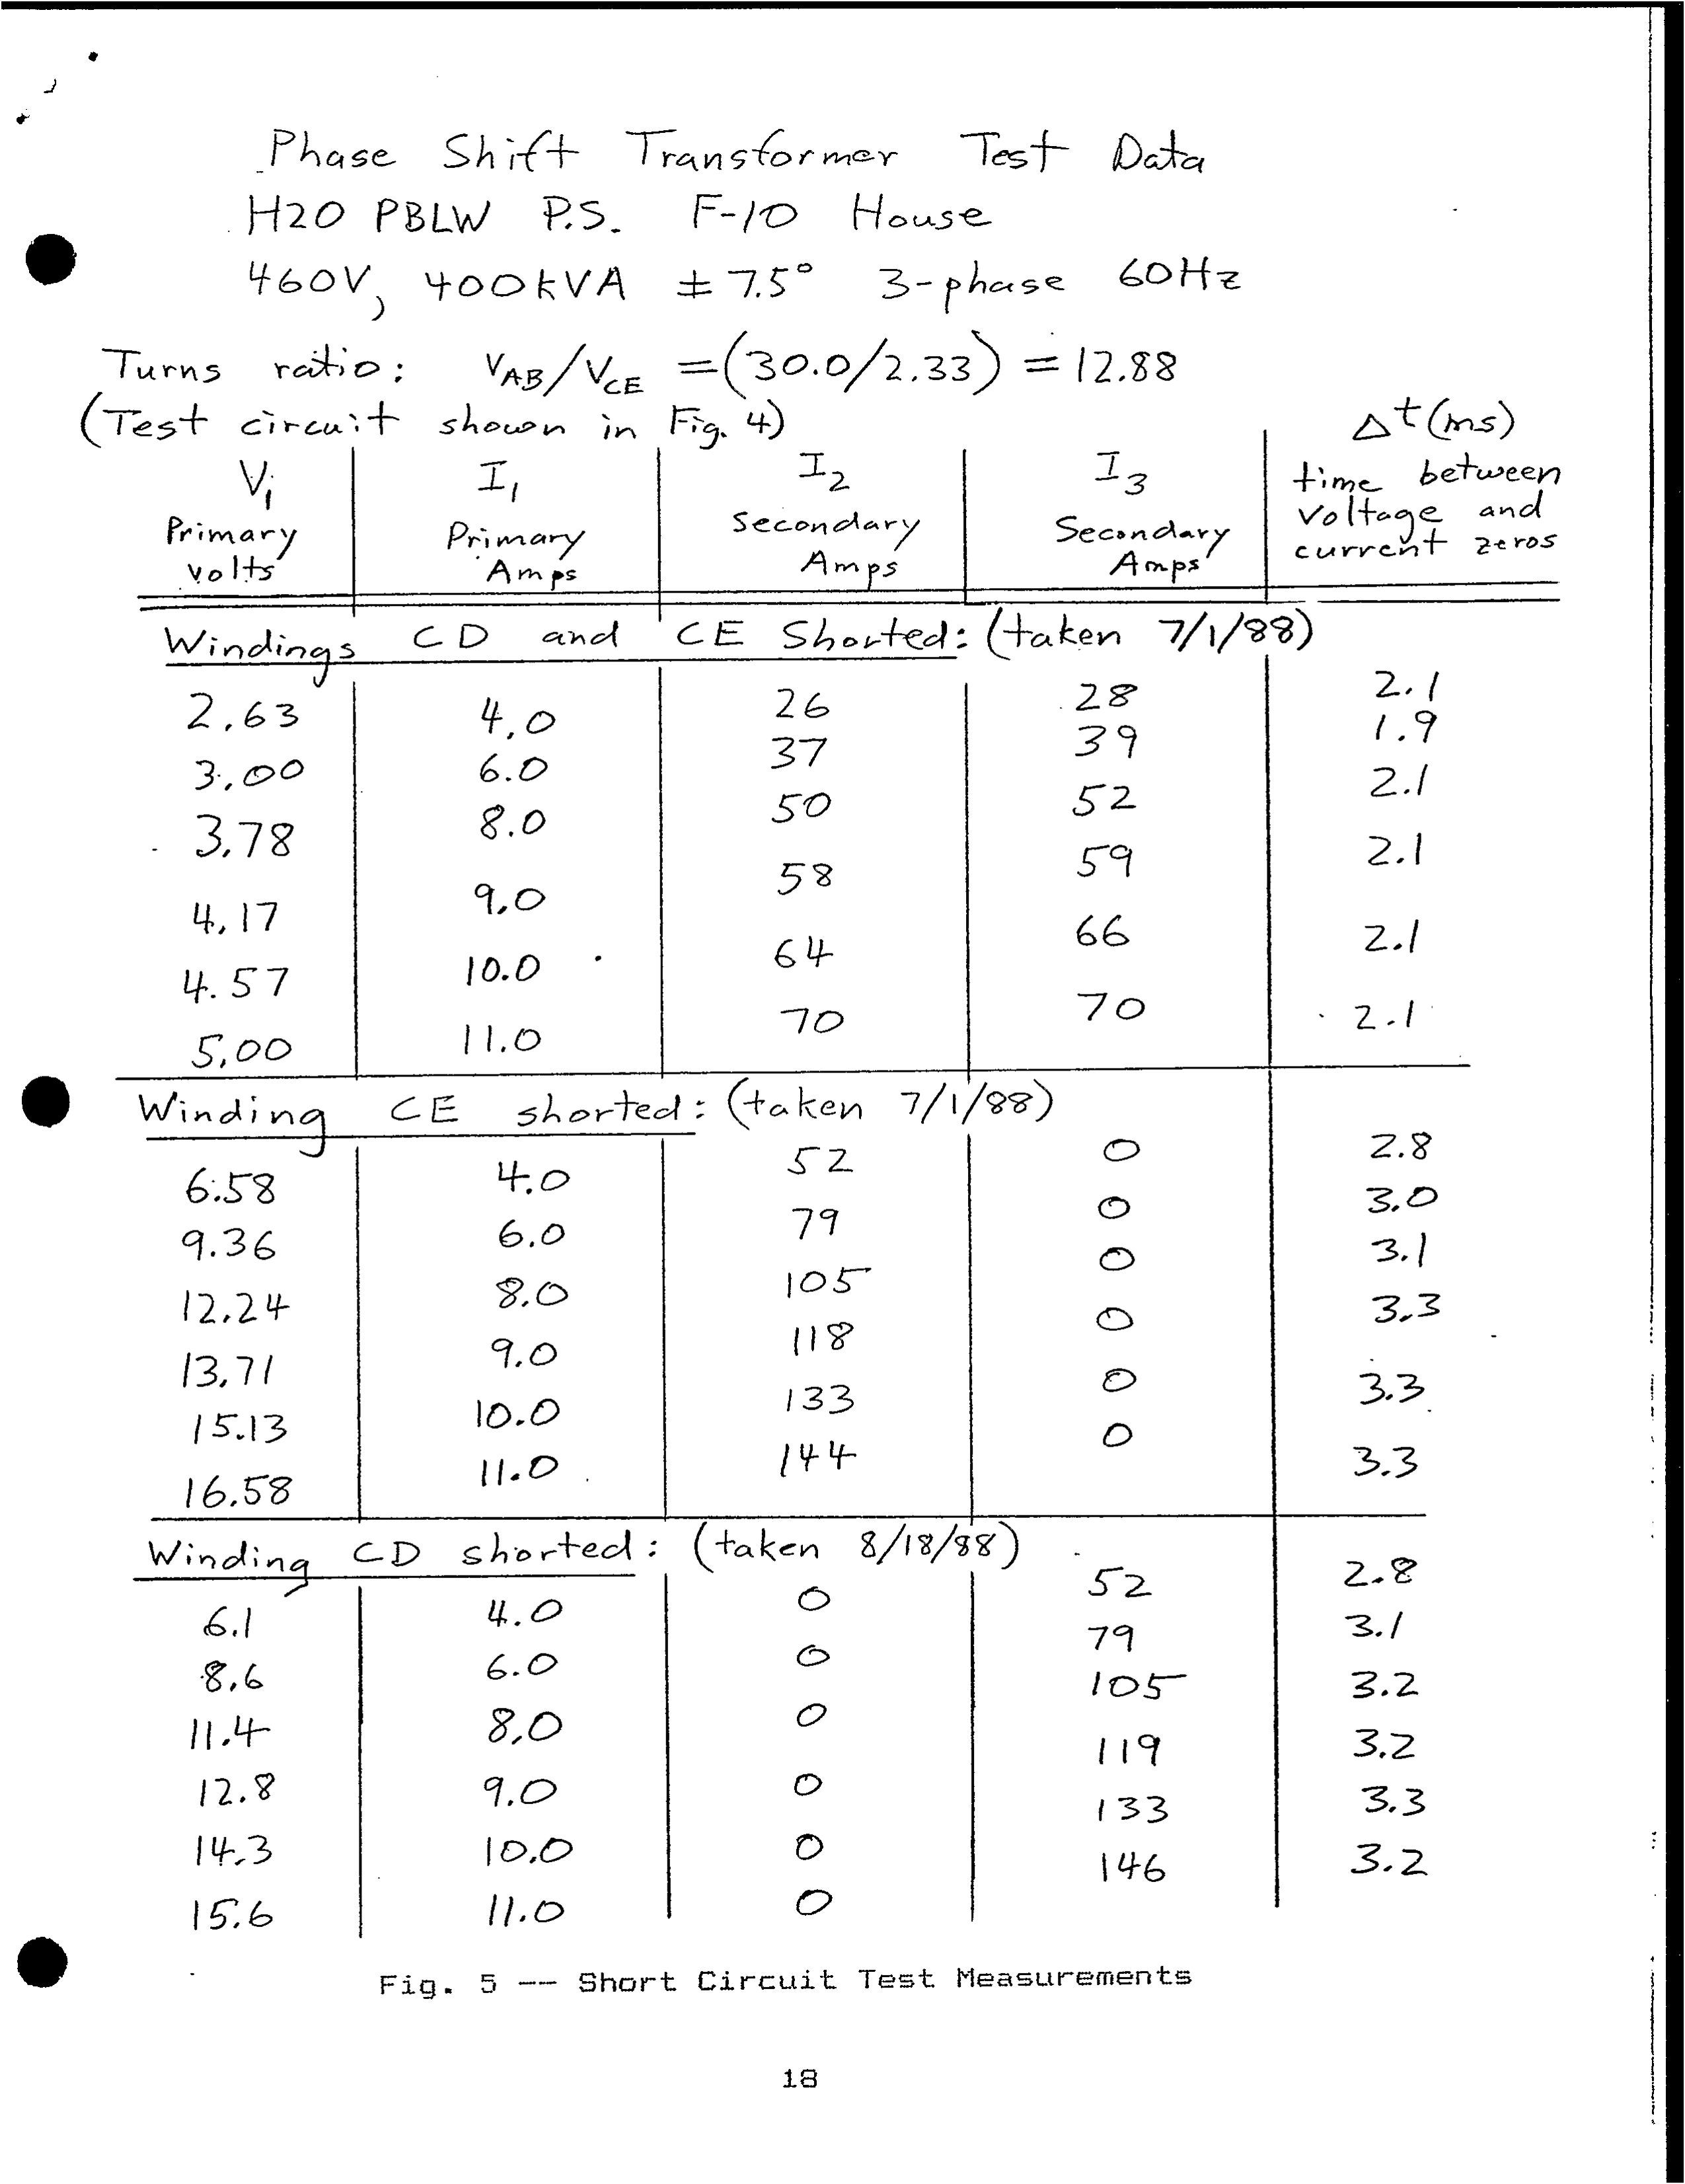 Phase Shift Transformer Test Data
H20 PBLW P.S. F-10 House
460V, 400kVA ± 7.5° 3-phase 60Hz
Turns ratio: VAB/VCE = (30.0/2.33) = 12.88
(Test circuit shown in Fig. 4)
V1 Primary volts
I1 Primary Amps
I2 Secondary Amps
I3 Secondary Amps
Δt(ms) time between voltage and current zeros
Windings CD and CE Shorted: (taken 7/1/88)
2.63 4.0 26 28 2.1
3.00 6.0 37 39 1.9
3.78 8.0 50 52 2.1
4.17 9.0 58 59 2.1
4.57 10.0 64 66 2.1
5.00 11.0 70 70 2.1
Winding CE shorted: (taken 7/1/88)
6.58 4.0 52 0 2.8
9.36 6.0 79 0 3.0
12.24 8.0 105 0 3.1
13.71 9.0 118 0 3.3
15.13 10.0 133 0 3.3
16.58 11.0 144 0 3.3
Winding CD shorted: (taken 8/18/88)
6.1 4.0 0 52 2.8
8.6 6.0 0 79 3.1
11.4 8.0 0 105 3.2
12.8 9.0 0 119 3.2
14.3 10.0 0 133 3.3
15.6 11.0 0 146 3.2
Fig. 5 -- Short Circuit Test Measurements
18